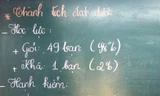 * Thành tích đạt được
- Học lực:
+ Giỏi: 49 bạn (98%)
+ Khá: 1 bạn (2%)
- Hạnh kiểm: